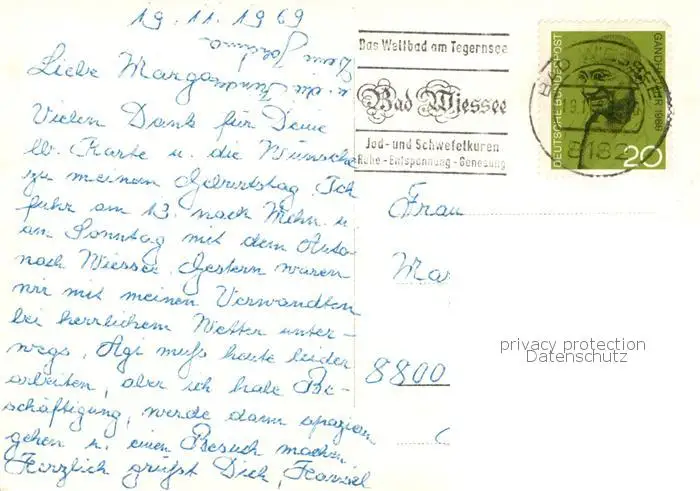 19.11.1969
Liebe Marga
Vielen Dank für Deine
lb. Karte u. die Wünsche
zu meinem Geburtstag. Ich
fuhr am 13. nach Mchn. u.
am Sonntag mit dem Auto
nach Wiessee. Gestern waren
wir mit meinen Verwandten
bei herrlichem Wetter unter-
wegs. Agi muß heute leider
arbeiten, aber ich habe Be-
schäftigung, werde dann spazieren
gehen u. einen Besuch machen.
Herzlich grüßt Dich,
Das Weltbad am Tegernsee
Bad Wiessee
Jod- und Schwefelkuren
Ruhe - Entspannung - Genesung
DEUTSCHE BUNDESPOST
20
8182
Frau
Ma
8800
privacy protection
Datenschutz